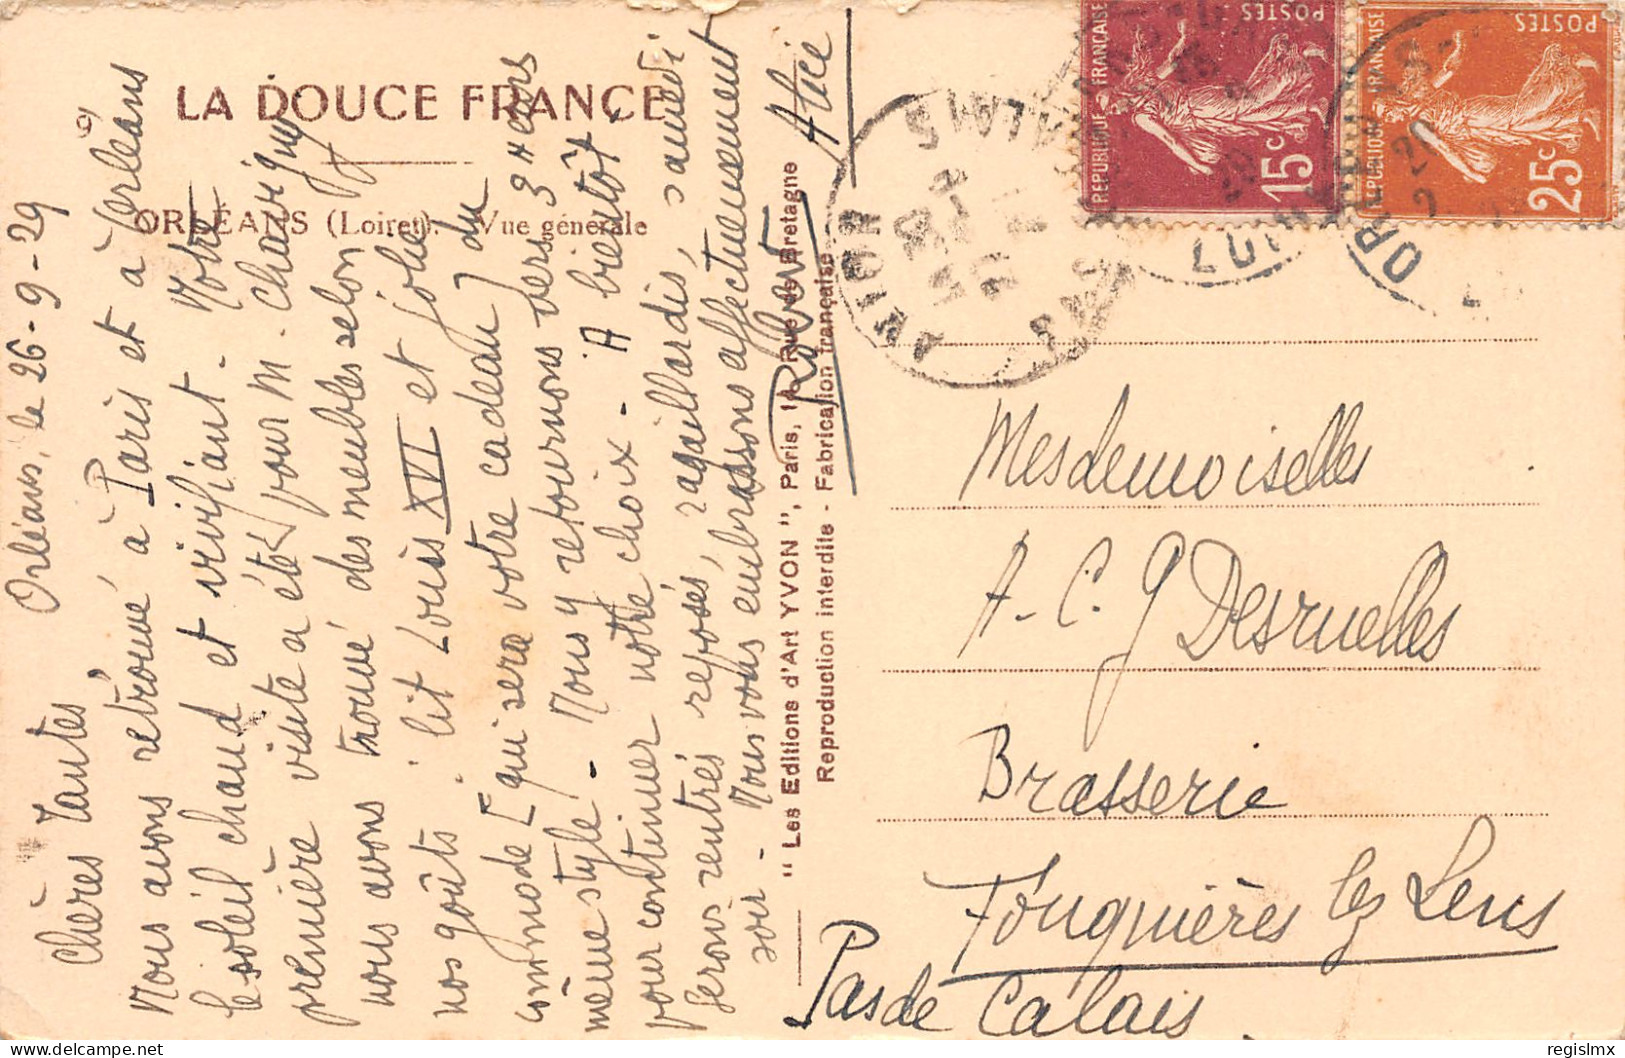 LA DOUCE FRANCE
9
ORLÉANS (Loiret). - Vue générale
Orléans, le 26-9-29
Chères Tantes,
Nous avons retrouvé à Paris et à Orléans
le soleil chaud et vivifiant. Notre
première visite a été pour M. Chavigny
nous avons trouvé des meubles selon
nos goûts : lit Louis XVI et jolie
commode [qui sera votre cadeau] du
même style. - Nous y retournons vers 3 heures
pour continuer notre choix. - A bientôt,
serons rentrés reposés, ragaillardis, samedi
soir - Nous vous embrassons affectueusement
Robert Alice
" Les Editions d'Art YVON ", Paris, Rue de Bretagne
Reproduction interdite - Fabrication française
POSTES
REPUBLIQUE FRANÇAISE
15c
POSTES
REPUBLIQUE FRANÇAISE
25c
AVION
Mesdemoiselles
A. C. G Desruelles
Brasserie
Fouquières lez Lens
Pas de Calais
regislmx